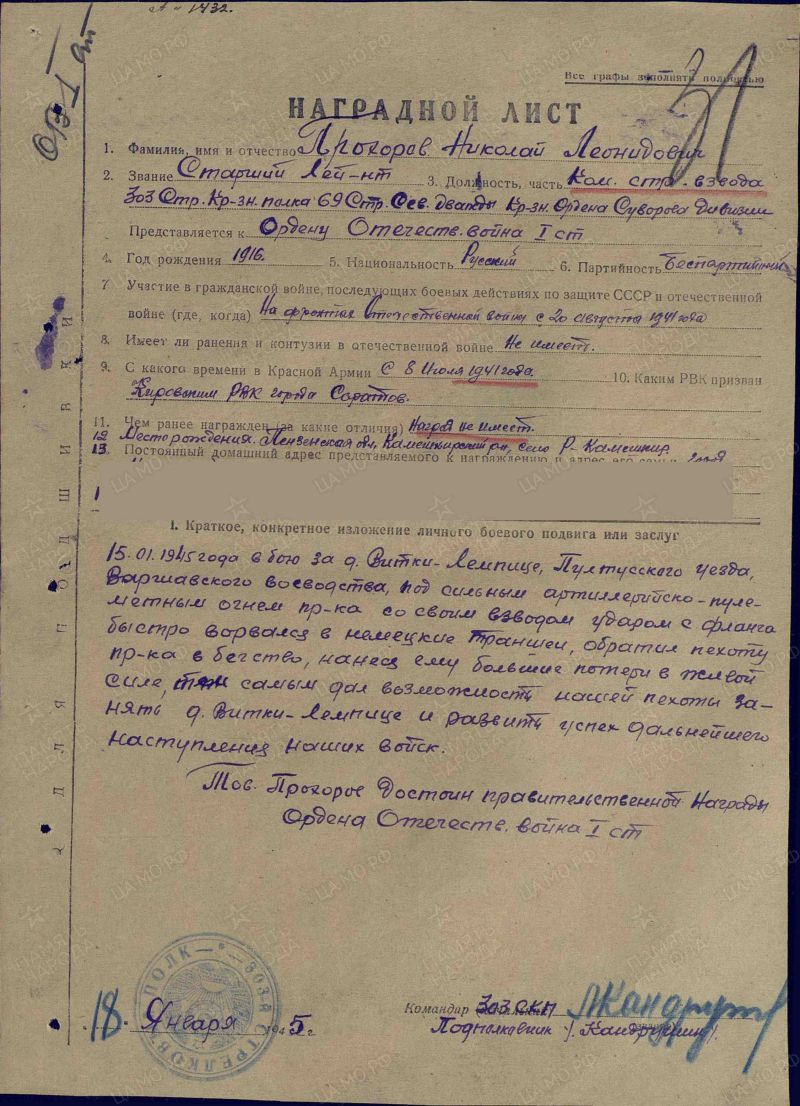 1432.
Все графы заполнять полностью
НАГРАДНОЙ ЛИСТ
1. Фамилия, имя и отчество Прохоров Николай Леонидович
2. Звание Старший Лей-нт 3. Должность, часть Ком. стр. взвода
303 Стр. Кр-зн. полка 69 Стр. Сев. дважды Кр-зн. Ордена Суворова Дивизии
Представляется к Ордену Отечеств. война I ст
4. Год рождения 1916. 5. Национальность Русский 6. Партийность Беспартийный
7 Участие в гражданской войне, последующих боевых действиях по защите СССР и отечественной
войне (где, когда) На фронтах Отечественной войны с 20 августа 1941 года
8. Имеет ли ранения и контузии в отечественной войне Не имеет.
9. С какого времени в Красной Армии С 8 Июля 1941 года. 10. Каким РВК призван
Кировским РВК города Саратов.
11. Чем ранее награжден (за какие отличия) Наград не имеет.
12 Место рождения. Пензенская обл, Камешкирский р-н, село Р-Камешкир.
13. Постоянный домашний адрес представляемого к награждению и адрес его семьи
I. Краткое, конкретное изложение личного боевого подвига или заслуг
15.01.1945 года в бою за д. Витки-Лемпице, Пултусского уезда,
Варшавского воеводства, под сильным артиллерийско-пуле-
метным огнем пр-ка со своим взводом ударом с фланга
быстро ворвался в немецкие траншеи, обратил пехоту
пр-ка в бегство, нанеся ему большие потери в живой
силе, тем самым дал возможность нашей пехоты за-
нять д. Витки-Лемпице и развить успех дальнейшего
наступления наших войск.
Тов. Прохоров Достоин правительственной Награды
Ордена Отечеств. война I ст
ДЛЯ ПОДШИВКИ
ПОЛК 303й СТРЕЛКОВ
18 Января 1945 г
Командир 303 СКП
Подполковник